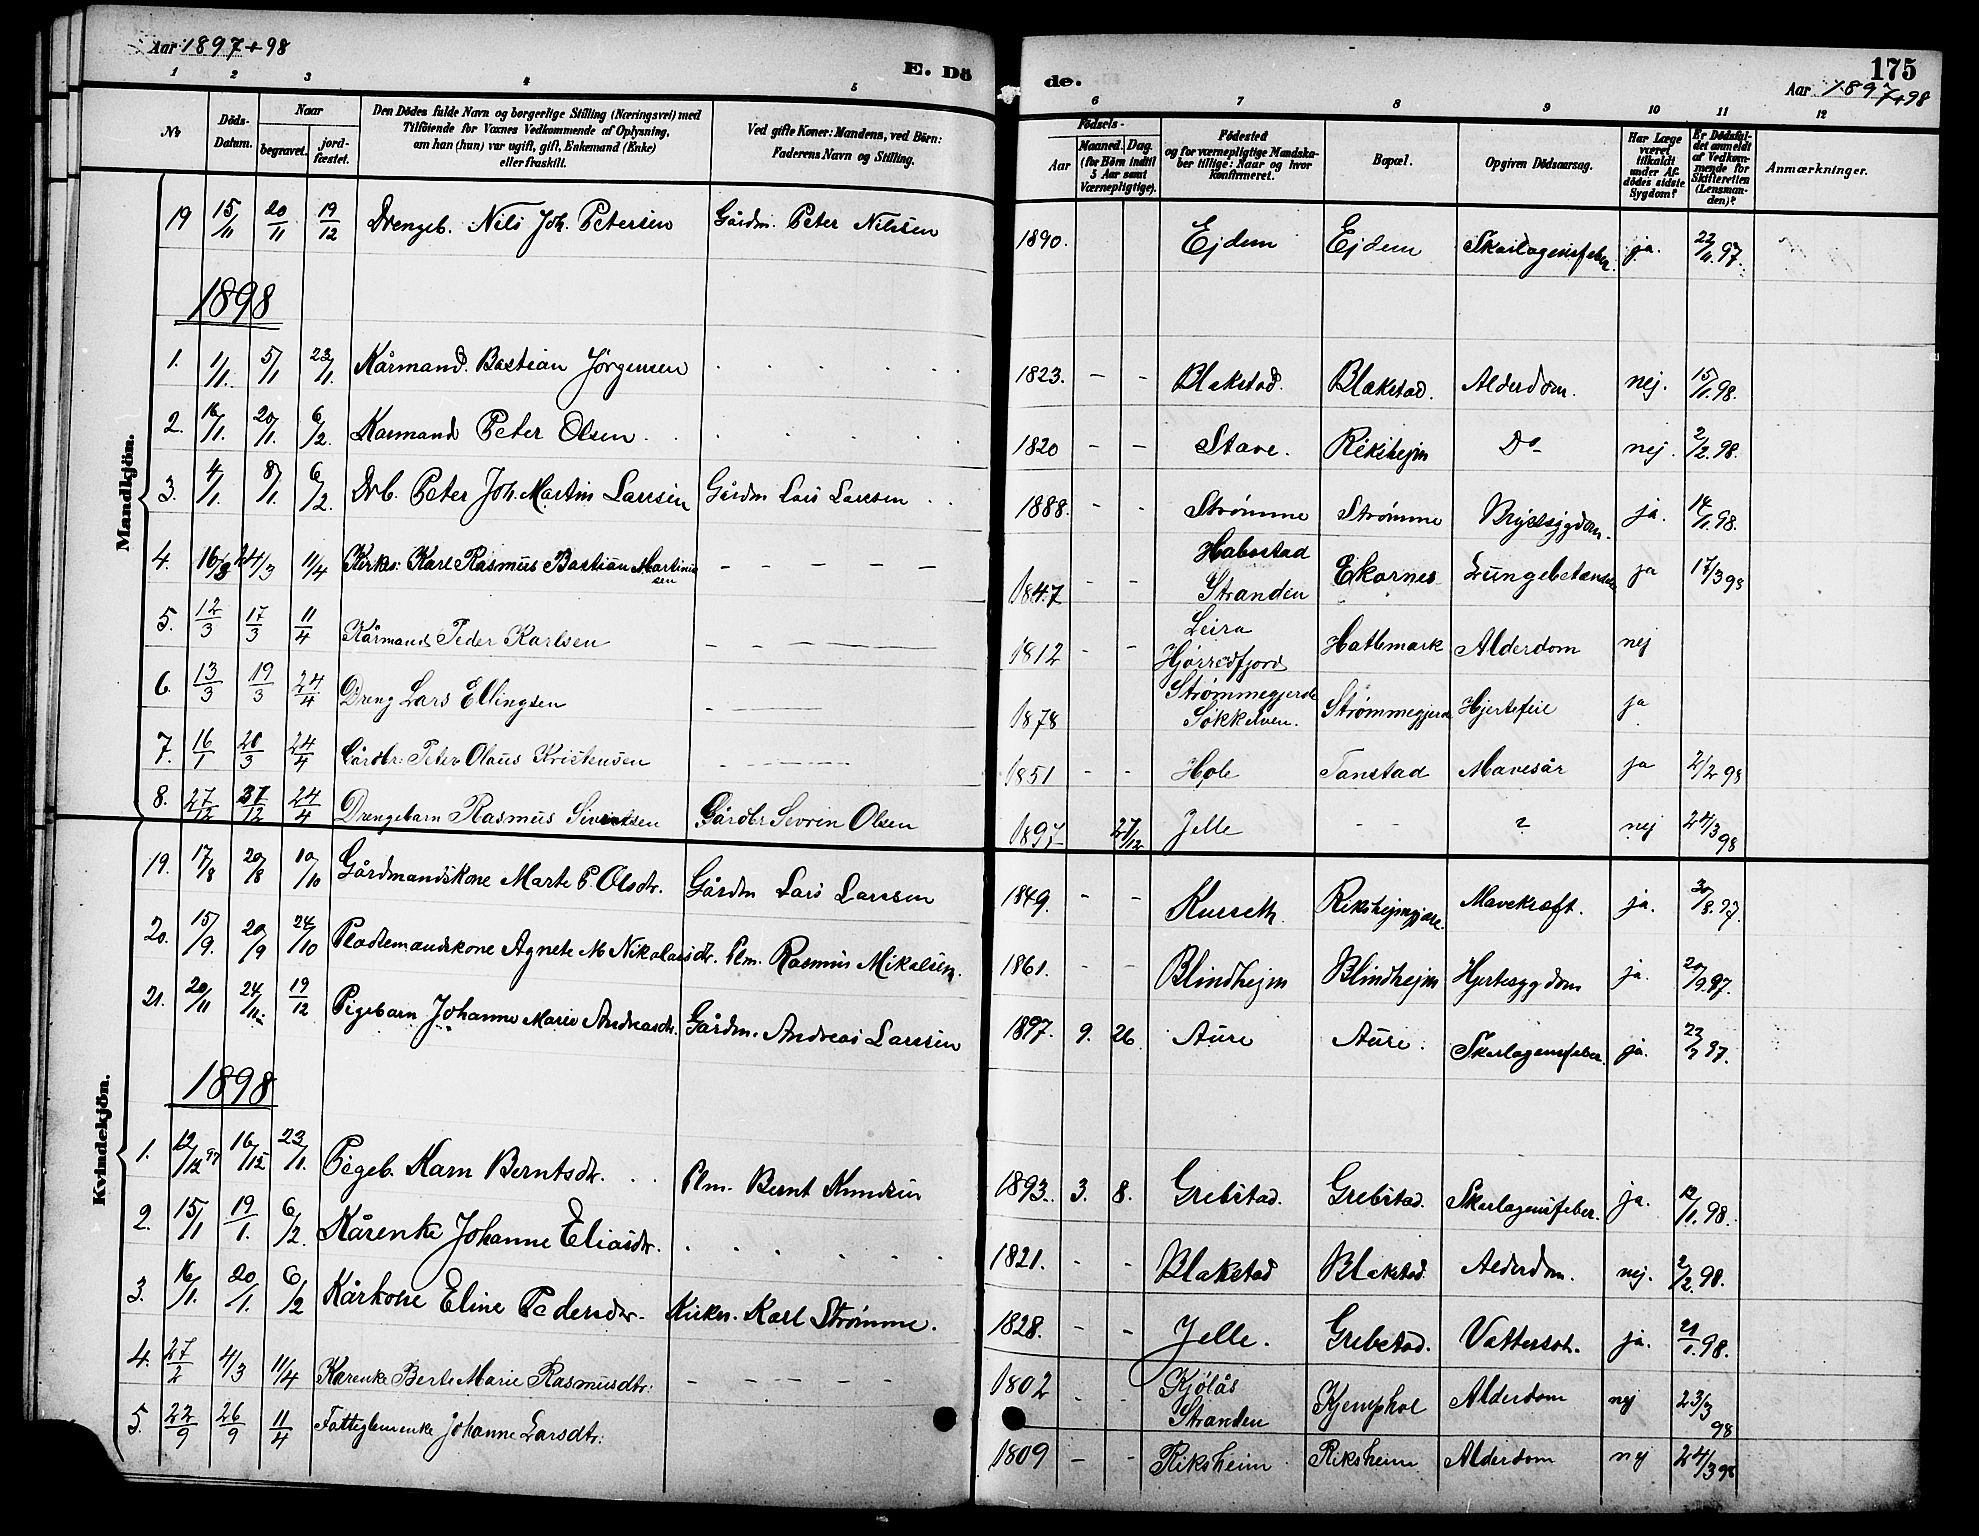 Aar 1897+98
E. Dö
de.
175
Aar 1897+98
1 2 3 4 5 6 7 8 9 10 11 12
No
Döds-Datum.
Naar
begravet.
jord-fæstet.
Den Dödes fulde Navn og borgerlige Stilling (Næringsvei) med
Tilföiende for Voxnes Vedkommende af Oplysning,
om han (hun) var ugift, gift, Enkemand (Enke)
eller fraskilt.
Ved gifte Koner: Mandens, ved Börn:
Faderens Navn og Stilling.
Födsels-
Aar
Maaned. Dag.
(for Börn indtil
5 Aar samt
Værnepligtige).
Födested
og for værnepligtige Mandska-
ber tillige: Naar og hvor
konfirmeret.
Bopæl.
Opgiven Dödsaarsag.
Har Læge
været
tilkaldt
under Af-
dödes sidste
Sygdom?
Er Dödsfal-
det anmeldt
af Vedkom-
mende for
Skifteretten
(Lensman-
den)?
Anmærkninger.
Mandkjön.
19 15/11 20/11 19/12 Drengeb. Nils Joh. Petersen Gårdm. Peter Nilssen 1890. Ejdem Ejdem Skarlagensfeber. ja. 22/11.97.
1898
1. 1/1. 5/1 23/1. Kårmand. Bastian Jörgensen 1823. - - Blakstad. Blakstad. Alderdom. nej. 15/1.98.
2. 16/1. 20/1. 6/2. Kårmand Peter Olsen 1820 - - Stave. Rikshejm Do nej. 2/2.98.
3. 4/1. 8/1. 6/2. Drb. Peter Joh. Martin Larssen Gårdm Lars Larssen 1888. - - Strømme Strømme Brystsygdom. ja. 14/1.98.
4. 16/3 24/3 11/4 Kirkes: Karl Rasmus Bastian Martinussen - - - - - 1847 - - Habostad Stranden Ekornes Lungebetændelse ja 17/3 98
5. 12/3 17/3 11/4 Kårmand Peder Karlsen 1812 - - Leira Hjørredfjord Hatlemark Alderdom nej
6. 13/3 19/3 24/4 Dreng Lars Ellingsen 1878 Strømmegjerde Søkkelven. Strømmegjerde Hjertefeil ja
7. 16/1 20/3 24/4 Gårdbr: Peter Olaus Kristensen 1851 - - Hole Tanstad Mavesår ja 2/2 98
8. 27/12 31/12 24/4 Drengebarn Rasmus Sivertsen Gårdbr Sevrin Olsen 1897 27/12 Jelle - - ? nej 24/3 98
Kvindekjön.
19. 17/8 20/8 10/10 Gårdmandskone Marte P. Olsdtr. Gårdm Lars Larssen 1849. - - Kurseth Riksheimgjære. Mavekræft. ja. 30/8.97.
20. 15/9. 20/9 24/10 Pladsemandskone Agnete M Nikolaisdtr. Plm. Rasmus Mikalsen. 1861. - - Blindhejm Blindhejm Hjertesygdom ja. 20/9.97.
21. 20/11 24/11 19/12 Pigebarn Johanne Marie Andreasdtr. Gårdm. Andreas Larssen 1897. 9. 26. Aure Aure. Skarlagensfeber. ja. 97.
1898
1. 12/12 97 16/12 23/1. Pigeb. Karn Berntsdtr. Plm. Bernt Knudsen 1893. 3. 8. Grebstad. Grebstad. Skarlagensfeber. ja. 12/1.98.
2. 15/1 19/1. 6/2. Kårenke Johanne Eliasdtr. 1821. - - Blakstad Blakstad. Alderdom. nej. 2/2.98.
3. 16/1. 20/1. 6/2 Kårkone Eline Pedersdtr. Kirkes. Karl Strømme. 1828. - - Jelle. Grebstad. Vattersot. ja. 21/1.98.
4. 27/2 4/3 11/4 Karenke Berte Marie Rasmusdtr: - - - - 1802 - - Kjölås Stranden Kjemphol Alderdom nej 23/3 98
5. 22/9 26/9 11/4 Fattiglemenke Johanne Larsdtr: 1809 - - Riksheim Riksheim Alderdom nej 24/3 98